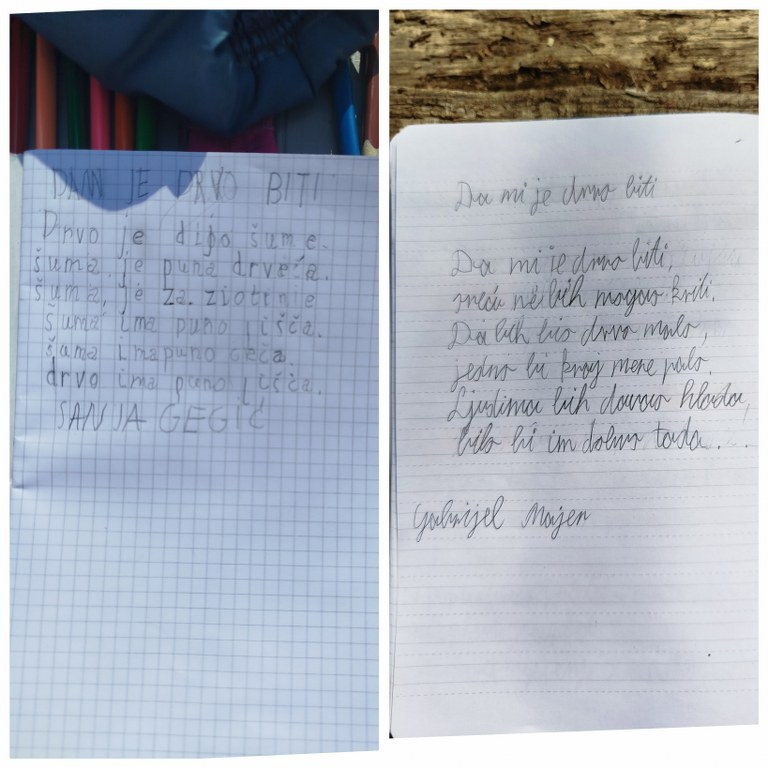 DAMI JE DRVO BITI
Drvo je dipo šume.
šuma, je puna drveča.
šuma, je za. ziotinje
šuma ima puno lišča.
šuma imapuno ceča.
drvo ima puno lišča.
SANJA GEGIĆ
Da mi je drvo biti
Da mi je drvo biti,
sreću ne bih mogao kriti.
Da bih bio drvo malo,
jedno bi kraj mene palo.
Ljudima bih davao hlada,
bilo bi im dobro tada...
Gabrijel Majer